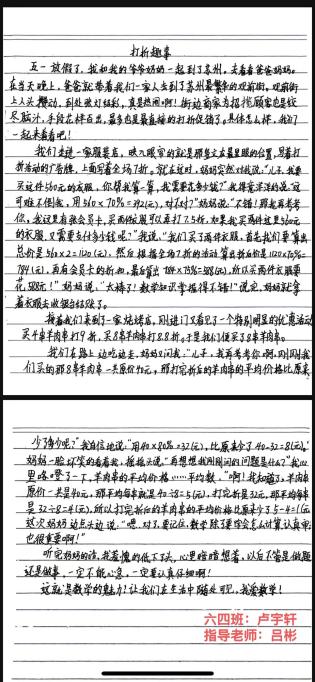 打折趣事
五一放假了，我和我的爷爷奶奶一起到了苏州，去看看爸爸妈妈。
在当天晚上，爸爸就带着我们一家人去到了苏州最繁华的观前街。观前街
上人头攒动，到处张灯结彩，真是热闹啊！街边商家为招揽顾客也是绞
尽脑汁，手段花样百出，最多也是最直接的打折促销了。具体怎么样，我们
一起来看看吧！
我们走进一家服装店，映入眼帘的就是那些立在最显眼的位置，写着打
折活动的广告牌，上面写着全场7折。就在这时，妈妈突然对我说：“儿子，我要
买这件560元的衣服，你帮我算一算，我需要花多少钱？”我得意洋洋的说：“这
可难不倒我，用560×70%=392(元)，对不对？”妈妈说：“不错！那我再考考
你，我这里有张会员卡，买两件衣服可以再打7.5折，如果我买两件这里560元
的衣服，又需要支付多少钱呢？”我说：“我们买了两件衣服，首先我们要算出
总价是560×2=1120(元)，然后根据全场7折的活动算出折后价是1120×70%=
784(元)，再有会员卡的折扣，最后算出784×75%=588(元)，所以买两件衣服要
花588元！”妈妈说：“太棒了！数学知识掌握得不错！”说完，妈妈就拿
着衣服去收银台结账了。
接着我们来到了一家烧烤店，刚进门又看见了一个特别明显的优惠活动
买4串羊肉串打9折，买8串羊肉串打8.8折。于是我们便买了8串羊肉串。
我们在路上边吃边走，妈妈又问我：“儿子，我再考考你啊，刚刚我
们买的那8串羊肉串一共原价40元，那打完折后的羊肉串的平均价格比原来
少了多少呢？”我自信地说：“用40×80%=32(元)，比原来少了40-32=8(元)。”
妈妈一脸坏笑的看着我，摇摇头说：“再想想我刚刚问的问题是什么？”我心
里咯噔了一下，羊肉串的平均价格……平均数……“啊！我知道了，羊肉串
原价一共是40元，那平均每串就是40÷8=5(元)，打完折是32元，那平均每串
是32÷8=4(元)，所以打完折后的羊肉串的平均价格比原来少了5-4=1(元)
这次妈妈边点头边说：“嗯，对了，要记住，数学除了要你会怎么计算，认真审
也很重要啊！”
听完妈妈的话，我羞愧的低下了头，心里暗暗想着，以后不管是做题
还是做事，一定不能心急，一定要认真仔细啊！
这就是数学的魅力！让我们在生活中随处可见，我爱数学！
六四班：卢宇轩
指导老师：吕彬